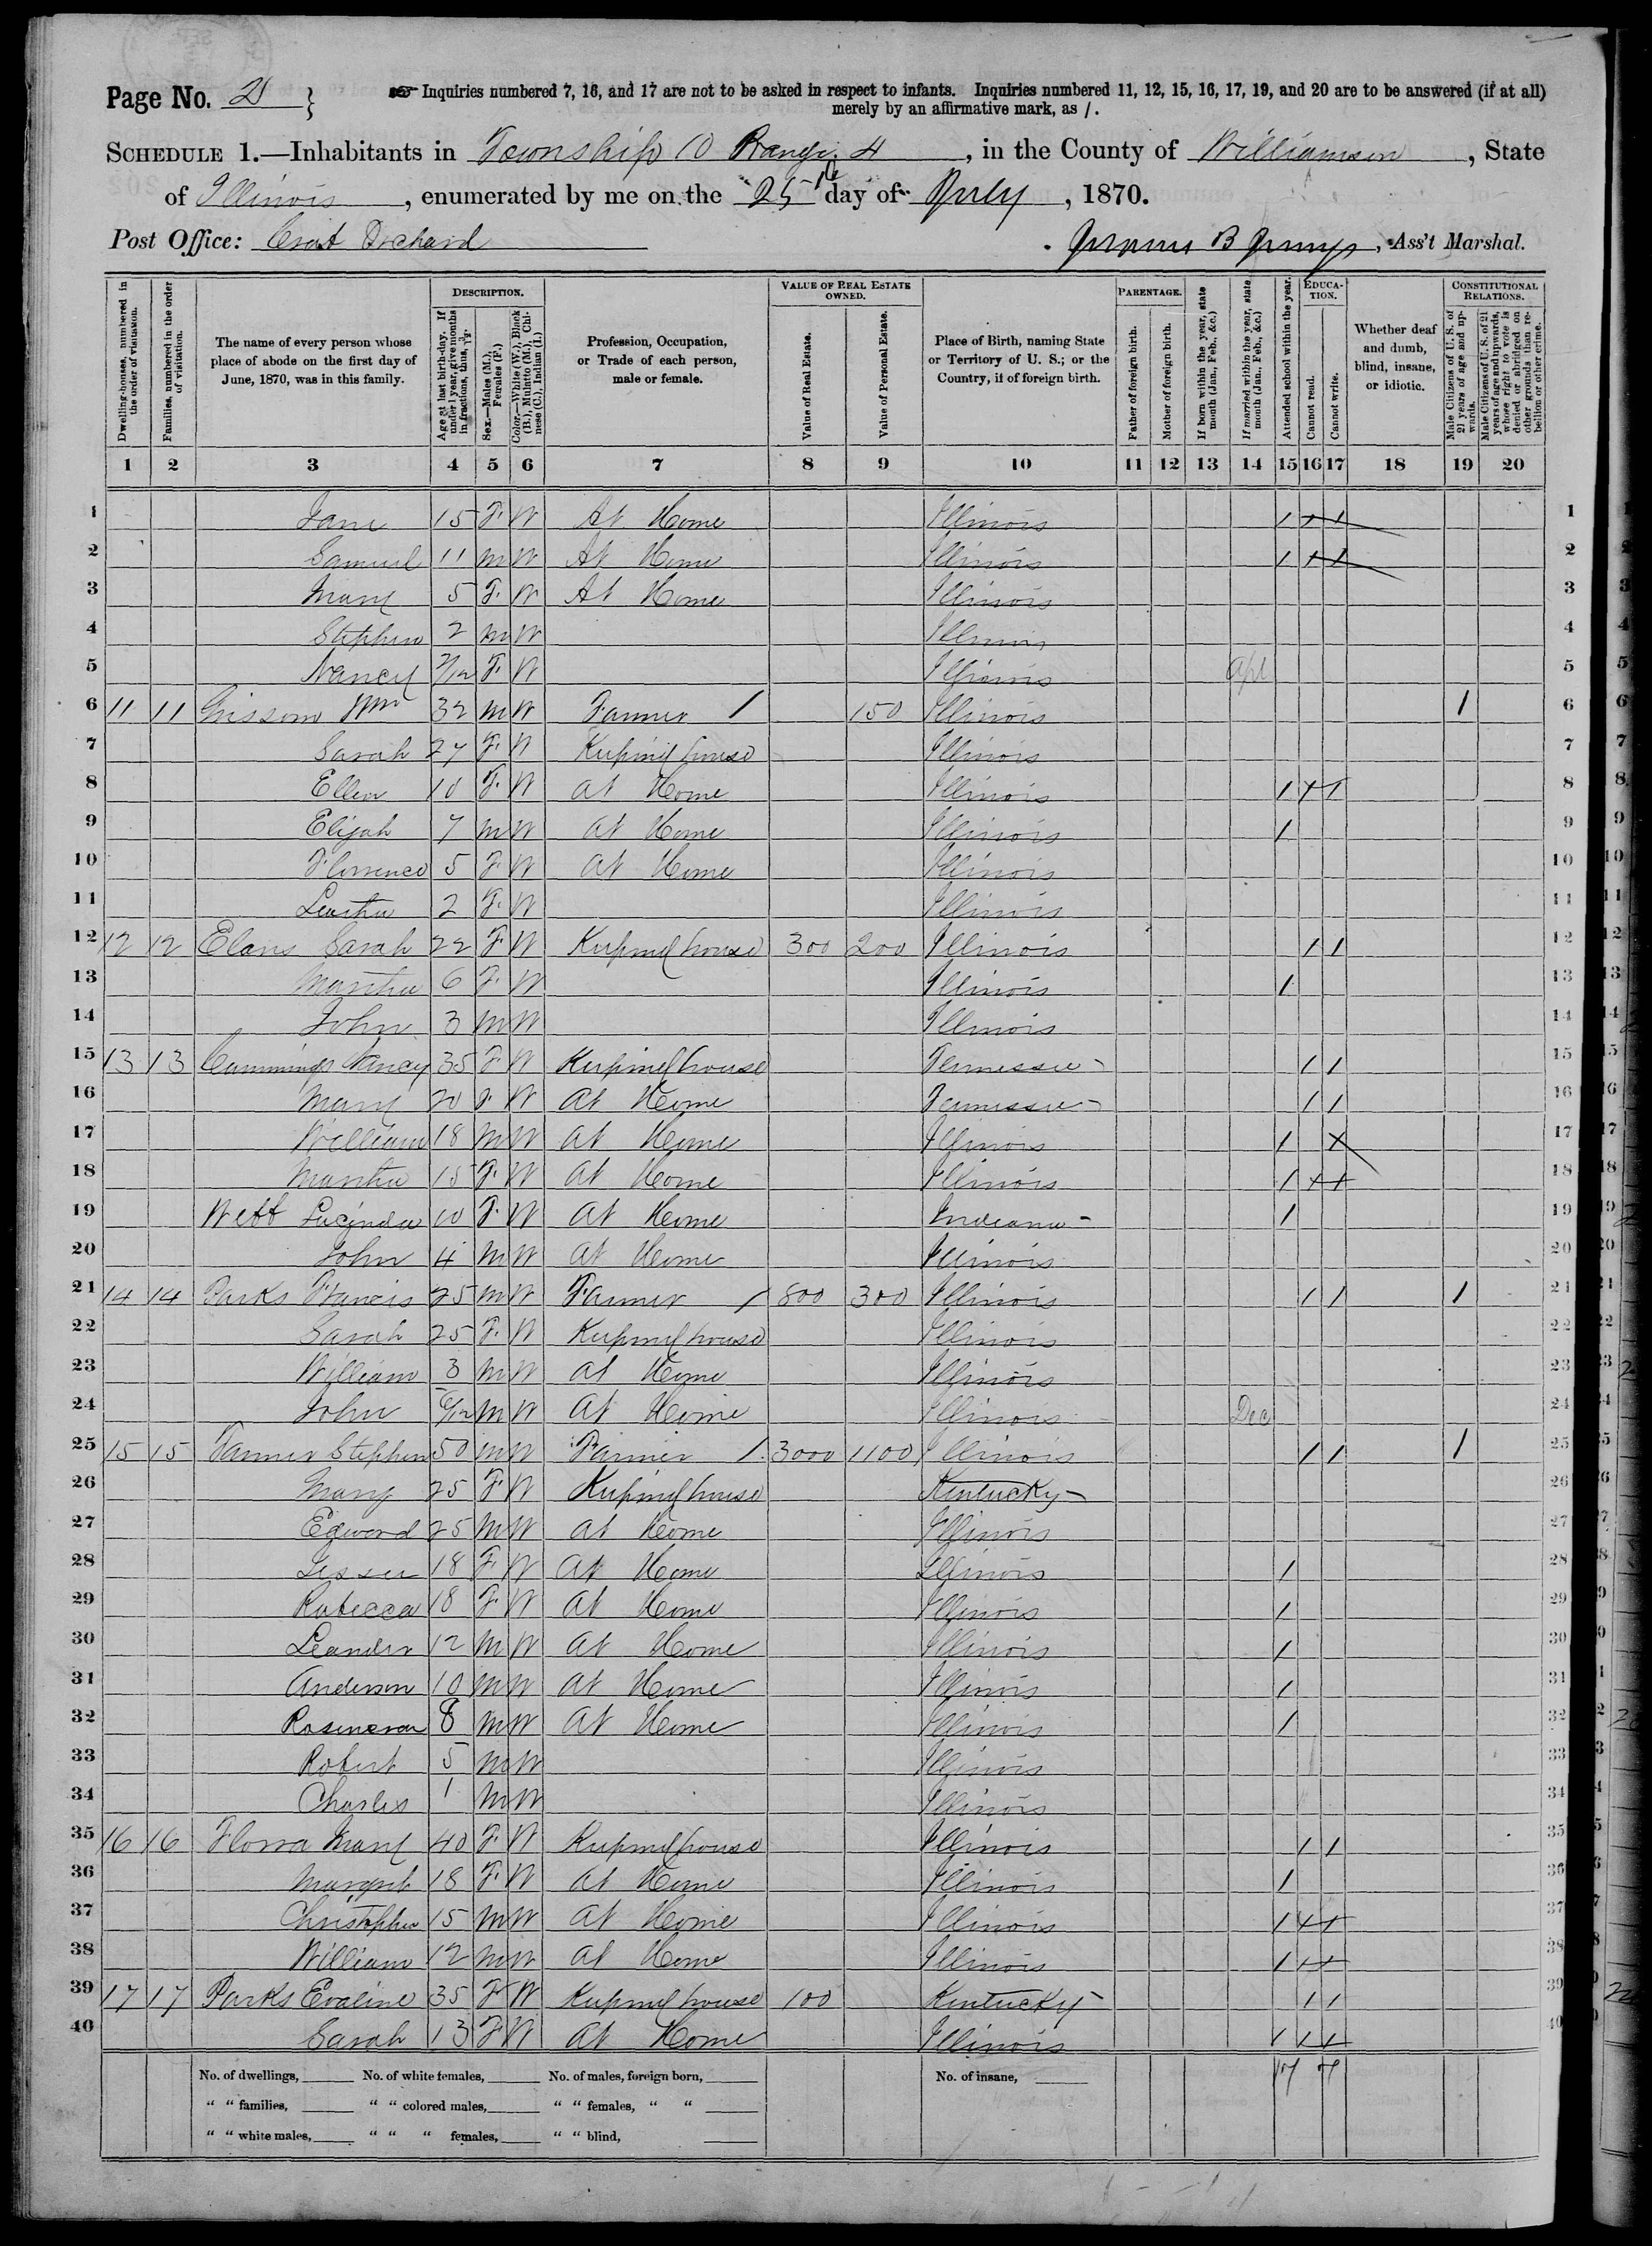 Page No. 2
☞ Inquiries numbered 7, 16, and 17 are not to be asked in respect to infants. Inquiries numbered 11, 12, 15, 16, 17, 19, and 20 are to be answered (if at all)
merely by an affirmative mark, as /.
SCHEDULE 1.—Inhabitants in Township 10 Range 4, in the County of Williamson, State
of Illinois, enumerated by me on the 25th day of July, 1870.
Post Office: Crab Orchard
Ass't Marshal.
Dwelling-houses, numbered in the order of visitation.
Families, numbered in the order of visitation.
The name of every person whose place of abode on the first day of June, 1870, was in this family.
DESCRIPTION.
Age at last birth-day. If under 1 year, give months in fractions, thus, 3/12.
Sex.—Males (M.), Females (F.)
Color.—White (W.), Black (B.), Mulatto (M.), Chinese (C.), Indian (I.)
Profession, Occupation, or Trade of each person, male or female.
VALUE OF REAL ESTATE OWNED.
Value of Real Estate.
Value of Personal Estate.
Place of Birth, naming State or Territory of U. S.; or the Country, if of foreign birth.
PARENTAGE.
Father of foreign birth.
Mother of foreign birth.
If born within the year, state month (Jan., Feb., &c.)
If married within the year, state month (Jan., Feb., &c.)
Attended school within the year.
EDUCATION.
Cannot read.
Cannot write.
Whether deaf and dumb, blind, insane, or idiotic.
CONSTITUTIONAL RELATIONS.
Male Citizens of U. S. of 21 years of age and upwards.
Male Citizens of U. S. of 21 years of age and upwards, whose right to vote is denied or abridged on other grounds than rebellion or other crime.
1 2 3 4 5 6 7 8 9 10 11 12 13 14 15 16 17 18 19 20
1 Jane 15 F W At Home Illinois / / / 1
2 Samuel 11 M W At Home Illinois / / / 2
3 Mary 5 F W At Home Illinois 3
4 Stephen 2 M W Illinois 4
5 Nancy F W Illinois Apl 5
6 11 11 Grissom Wm 32 M W Farmer / 150 Illinois / 6
7 Sarah 27 F W Keeping house Illinois 7
8 Ellen 10 F W At Home Illinois / / / 8
9 Elijah 7 M W At Home Illinois / 9
10 Florence 5 F W At Home Illinois 10
11 2 F W Illinois 11
12 12 12 Sarah 22 F W Keeping house 300 200 Illinois / / 12
13 Martha 6 F W Illinois / 13
14 John 3 M W Illinois 14
15 13 13 Cummings Nancy 35 F W Keeping house Tennessee / / 15
16 Mary 20 F W At Home Tennessee / / 16
17 William 18 M W At Home Illinois / X 17
18 Martha 15 F W At Home Illinois / / / 18
19 Webb Lucinda 10 F W At Home Indiana / 19
20 John 4 M W At Home Illinois 20
21 14 14 Parks Francis 25 M W Farmer / 800 300 Illinois / / / 21
22 Sarah 25 F W Keeping house Illinois 22
23 William 3 M W At Home Illinois 23
24 John 6/12 M W At Home Illinois Dec 24
25 15 15 Stephen 50 M W Farmer / 3000 1100 Illinois / / / 25
26 Mary 25 F W Keeping house Kentucky 26
27 Edward 25 M W At Home Illinois 27
28 18 F W At Home Illinois / 28
29 Rebecca 18 F W At Home Illinois / 29
30 Leander 12 M W At Home Illinois / 30
31 Anderson 10 M W At Home Illinois / 31
32 8 M W At Home Illinois / 32
33 Robert 5 M W Illinois 33
34 Charles 1 M W Illinois 34
35 16 16 Mary 40 F W Keeping house Illinois / / 35
36 18 F W At Home Illinois / 36
37 Christopher 15 M W At Home Illinois / / / 37
38 William 12 M W At Home Illinois / / / 38
39 17 17 Parks Evaline 35 F W Keeping house 100 Kentucky / / 39
40 Sarah 13 F W At Home Illinois / / / 40
No. of dwellings, No. of white females, No. of males, foreign born, No. of insane,
" " families, " " colored males, " " females, " "
" " white males, " " " females, " " blind,